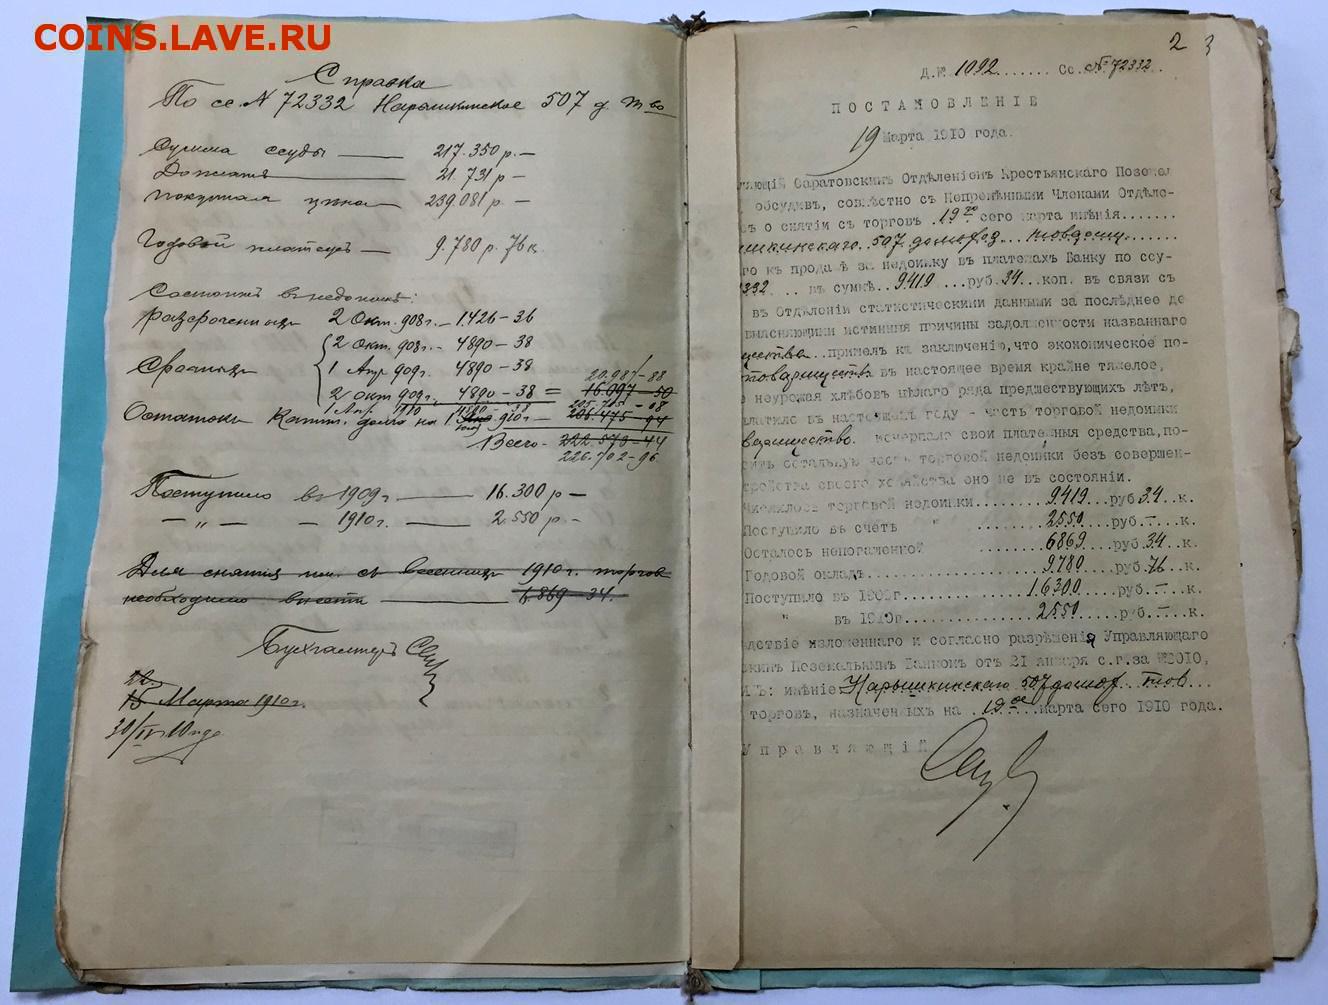 COINS.LAVE.RU
Справка
По сс. N 72332 Нарышкинское 507 д. т во
Сумма ссуды — 217.350 р. —
Доплата 21.731 р —
покупная цѣна 239.081 р. —
Годовой платежъ — 9.780 р. 76 к.
Состоитъ въ недоимкѣ:
разсроченныхъ 2 Окт. 908 г. — 1.426 - 36
2 Окт. 908 г. - 4890 - 38
Срочныхъ 1 Апр 909 г. 4890 - 38 20.987 - 88
2 окт 909 г. 4890 - 38 = 16.097 - 50
1 Апр. 1910
Остатокъ Капит. долга на 1 910 г - 205.475 - 94
Всего - 222.573 - 44
226.702 - 96
Поступило въ 1909 г — 16.300 р —
— „ — — 1910 г. — 2.550 р —
Для снятія им. съ весеннихъ 1910 г. торговъ
необходимо внести — 6.869 34.
Бухгалтеръ
15 Марта 1910 г.
30/IV 10 года
2 3
Д.№ 1092 Сс. № 72332
ПОСТАНОВЛЕНІЕ
19 марта 1910 года.
ляющій Саратовскимъ Отдѣленіемъ Крестьянскаго Поземел
обсудивъ, совмѣстно съ Непремѣнными Членами Отдѣле-
ъ о снятіи съ торговъ 19го сего марта имѣнія
шкинскаго 507 домохоз. товарищ.
го къ продажѣ за недоимку въ платежахъ Банку по ссу-
332 въ суммѣ 9419 руб. 34 коп. въ связи съ
въ Отдѣленіи статистическими данными за послѣднее де
выясняющими истинныя причины задолженности названнаго
щества пришелъ къ заключенію, что экономическое по-
товарищества въ настоящее время крайне тяжелое,
е неурожая хлѣбовъ цѣлаго ряда предшествующихъ лѣтъ,
латило въ настоящемъ году - часть торговой недоимки
варищество исчерпало свои платежныя средства, по-
сить остальную часть торговой недоимки безъ совершен-
тройства своего хозяйства оно не въ состояніи.
Числилось торговой недоимки 9419 руб 34 к.
Поступило въ счетъ " 2550 руб. — к.
Осталось непогашенной 6869 руб. 34 к.
Годовой окладъ 9780 руб. 76 к.
Поступило въ 1909г 16300 руб. — к.
" въ 1910г 2550 руб. — к.
едствіе изложеннаго и согласно разрѣшенія Управляющаго
скимъ Поземельнымъ Банкомъ отъ 21 января с.г. за №2010,
ИЛЪ: имѣніе Нарышкинскаго 507 домох. тов
торговъ, назначенныхъ на 19ое марта сего 1910 года.
Управляющій